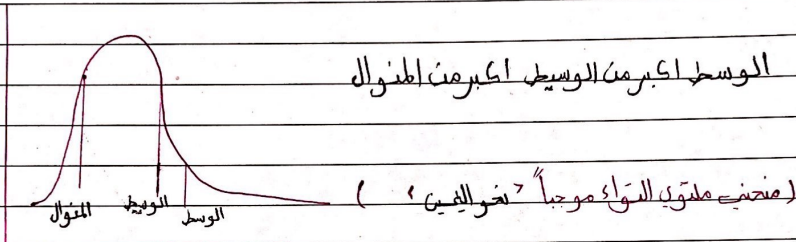 الوسط اكبر من الوسيط اكبر من المنوال
(منحنى ملتوي التواء موجباً "نحو اليمين")
المنوال الوسيط الوسط